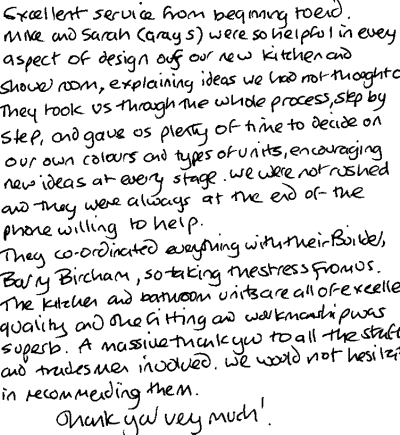 Excellent service from beginning to end.
Mike and Sarah (Grays) were so helpful in every
aspect of design our new kitchen and
shower room, explaining ideas we had not thought o
They took us through the whole process, step by
step, and gave us plenty of time to decide on
our own colours and types of units, encouraging
new ideas at every stage. We were not rushed
and they were always at the end of the
phone willing to help.
They co-ordinated everything with their Builder,
Barry Bircham, so taking the stress from us.
The kitchen and bathroom units are all of excelle
quality and the fitting and workmanship was
superb. A massive thank you to all the staff
and tradesmen involved. We would not hesita
in recommending them.
Thank you very much!